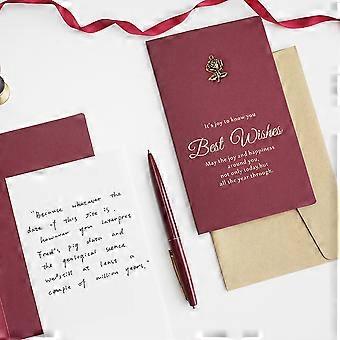 It's joy to know you
Best Wishes
May the joy and happiness
around you,
not only today,but
all the year through.
"Because whenever the
date of this size is -
however you interpret
Ford's pig data and
the geological science
westill at least a
couple of million years."